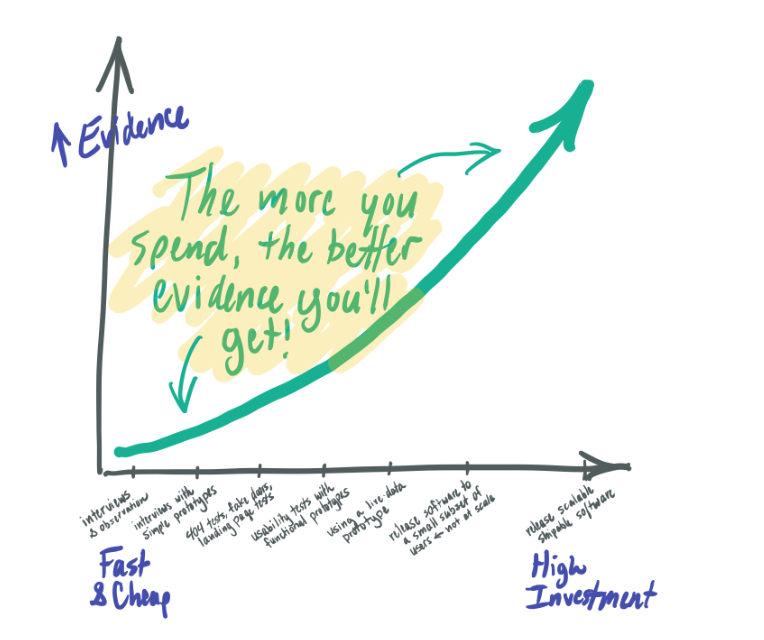 ↑ Evidence
The more you
spend, the better
evidence you'll
get!
interviews
& observation
interviews with
simple prototypes
404 tests, fake doors,
landing page tests
usability tests with
functional prototypes
using a live-data
prototype
release software to
a small subset of
users ← not at scale
release scalable
shipable software
Fast
& Cheap
High
Investment